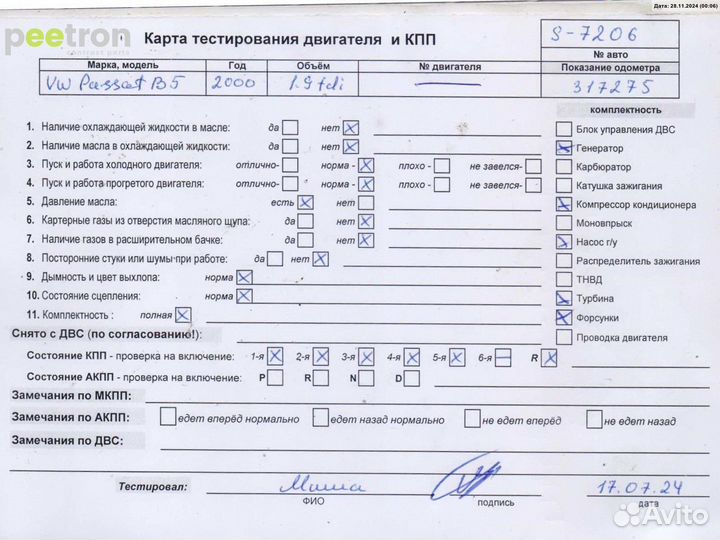 Дата: 28.11.2024 (00:06)
peetron
contract parts
Карта тестирования двигателя и КПП
S-7206
№ авто
Марка, модель Год Объём № двигателя Показание одометра
VW Passat B5 2000 1.9 tdi — 317275
комплектность
1. Наличие охлаждающей жидкости в масле: да нет X
Блок управления ДВС
2. Наличие масла в охлаждающей жидкости: да нет X
X Генератор
3. Пуск и работа холодного двигателя: отлично- норма - X плохо - не завелся-
Карбюратор
4. Пуск и работа прогретого двигателя: отлично- норма - X плохо - не завелся-
Катушка зажигания
5. Давление масла: есть X нет
X Компрессор кондиционера
6. Картерные газы из отверстия масляного щупа: да нет X
Моновпрыск
7. Наличие газов в расширительном бачке: да нет X
X Насос г/у
8. Посторонние стуки или шумы при работе: да нет X
Распределитель зажигания
9. Дымность и цвет выхлопа: норма X
ТНВД
10. Состояние сцепления: норма X
X Турбина
11. Комплектность : полная X
X Форсунки
Снято с ДВС (по согласованию!):
Проводка двигателя
Состояние КПП - проверка на включение: 1-я X 2-я X 3-я X 4-я X 5-я X 6-я — R X
Состояние АКПП - проверка на включение: P R N D
Замечания по МКПП:
Замечания по АКПП: едет вперёд нормально едет назад нормально не едет вперёд не едет назад
Замечания по ДВС:
Тестировал: Миша 17.07.24
ФИО подпись дата
Avito